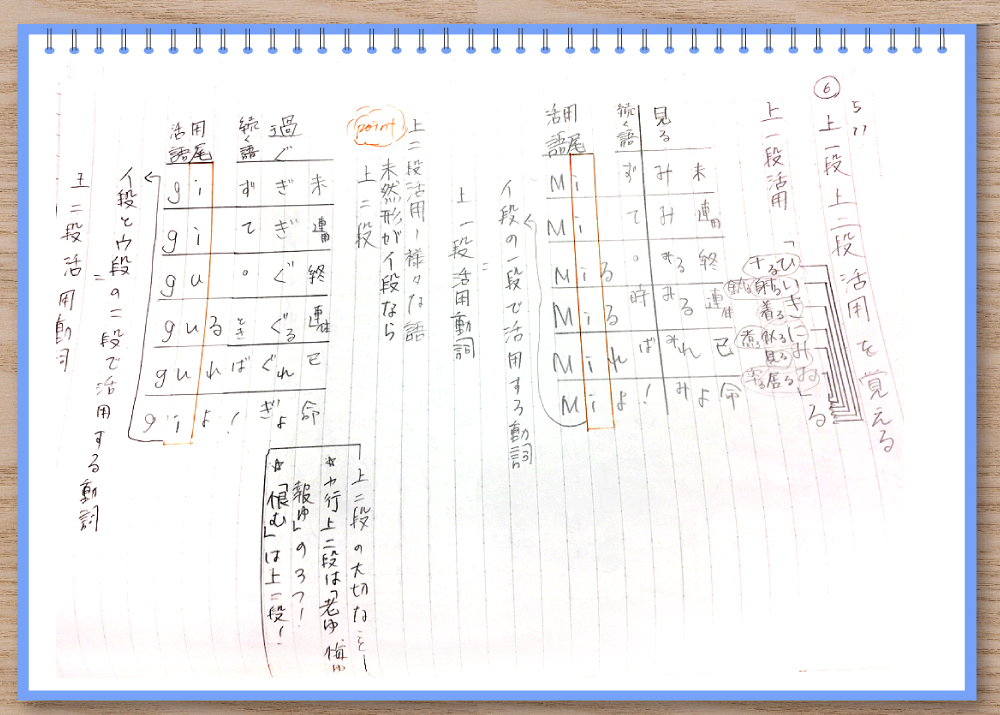 5 11
⑥ 上一段 上二段活用を覚える
上一段活用 「ひいきにみゐ」る
干る
射る
着る
煮る 似る
見る
率る 居る
見る み み みる みる みれ みよ
未 連用 終 連体 已 命
続く語 ず て 。 時 ば !
活用語尾 Mi Mi Miる Miる Miれ Miよ
イ段の一段で活用する動詞
=
上一段活用動詞
point
上二段活用ー様々な語
未然形がイ段なら
上二段
過ぐ ぎ ぎ ぐ ぐる ぐれ ぎよ
未 連用 終 連体 已 命
続く語 ず て 。 とき ば !
活用語尾 gi gi gu guる guれ giよ
イ段とウ段の二段で活用する動詞
=
上二段活用動詞
上二段の大切なこと
☆ヤ行上二段は「老ゆ 悔ゆ
報ゆ」の3つ!
☆「恨む」は上二段!